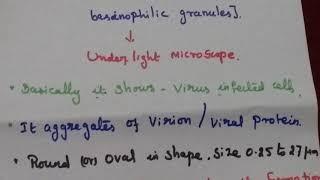 basinophilic granules].
↓
Under light microscope.
• Basically it shows - Virus infected cell.
• It aggregates of Virion / Viral protein.
• Round (or) Oval in shape. Size 0.25 to 27 µm
the Formation